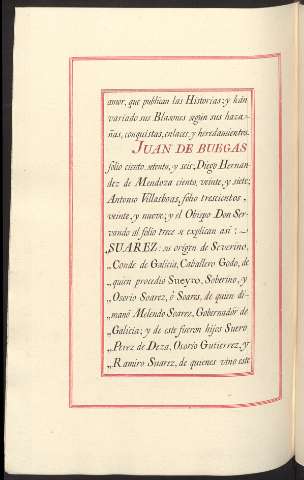 amor, que publican las Historias; y hán
variado sus Blasones segun sus haza-
ñas, conquistas, enlaces, y heredamientos.
JUAN DE BUEGAS
fólio ciento, setenta, y seis; Diego Hernan-
dez de Mendoza ciento, veinte, y siete;
Antonio Villasboas, fólio trescientos,
veinte, y nueve; y el Obispo Don Ser-
vando al folio trece se explican así: -
SUAREZ: su origen de Severino,
„Conde de Galicia, Caballero Godo, de
„quien procedio Sueyro, Soberino, y
„Osorio Soarez, ó Soares, de quien di-
„manó Melendo Soares, Gobernador de
„Galicia; y de este fueron hijos Suero
„Perez de Deza, Osorio Gutierrez, y
„Ramiro Suarez, de quienes vino este